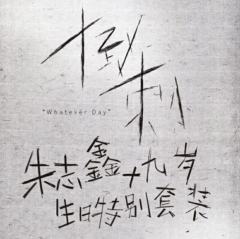 倒刺
"Whatever Day"
朱志鑫十九岁
生日特别套装